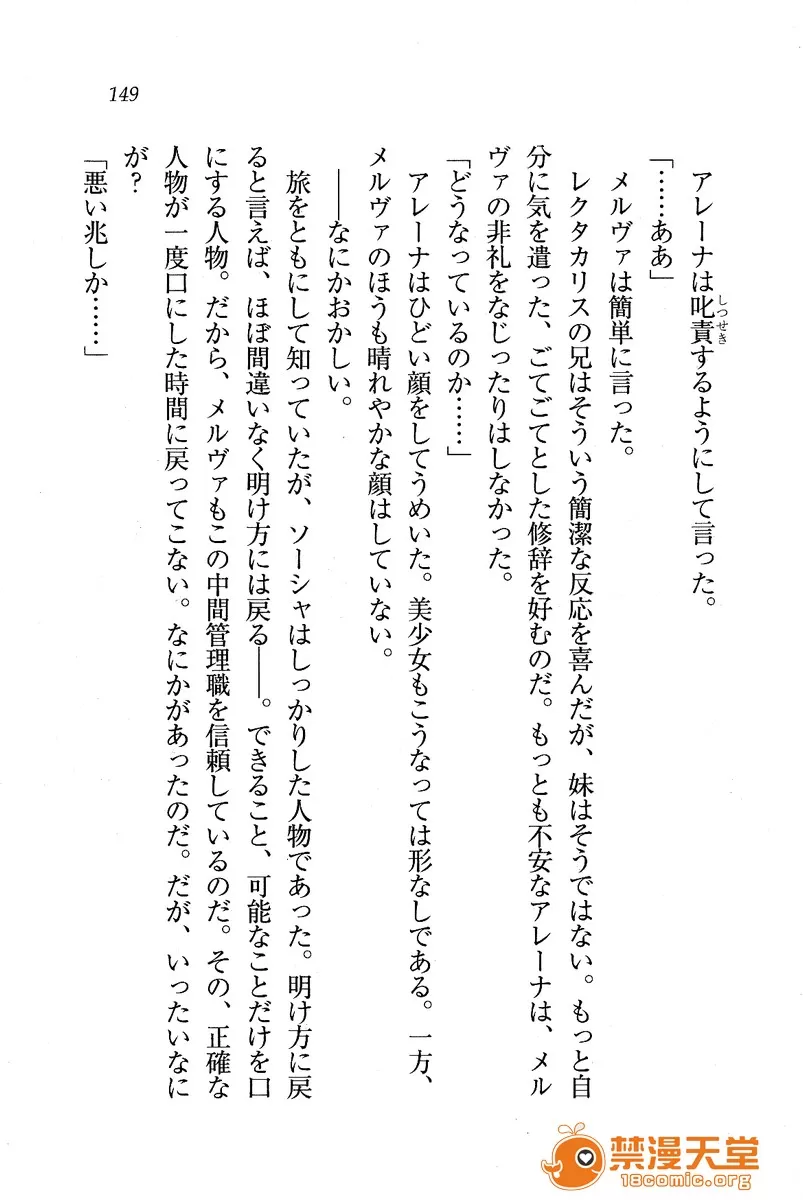 149
アレーナは叱責するようにして言った。
「……ああ」
メルヴァは簡単に言った。
レクタカリスの兄はそういう簡潔な反応を喜んだが、妹はそうではない。もっと自
分に気を遣った、ごてごてとした修辞を好むのだ。もっとも不安なアレーナは、メル
ヴァの非礼をなじったりはしなかった。
「どうなっているのか……」
アレーナはひどい顔をしてうめいた。美少女もこうなっては形なしである。一方、
メルヴァのほうも晴れやかな顔はしていない。
――なにかおかしい。
旅をともにして知っていたが、ソーシャはしっかりした人物であった。明け方に戻
ると言えば、ほぼ間違いなく明け方には戻る――。できること、可能なことだけを口
にする人物。だから、メルヴァもこの中間管理職を信頼しているのだ。その、正確な
人物が一度口にした時間に戻ってこない。なにかがあったのだ。だが、いったいなに
が？
「悪い兆しか……」
しつせき
禁漫天堂
18comic.org